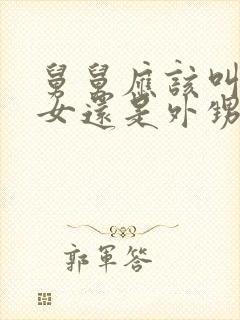 舅舅應該叫
女還是外甥
郭軍答